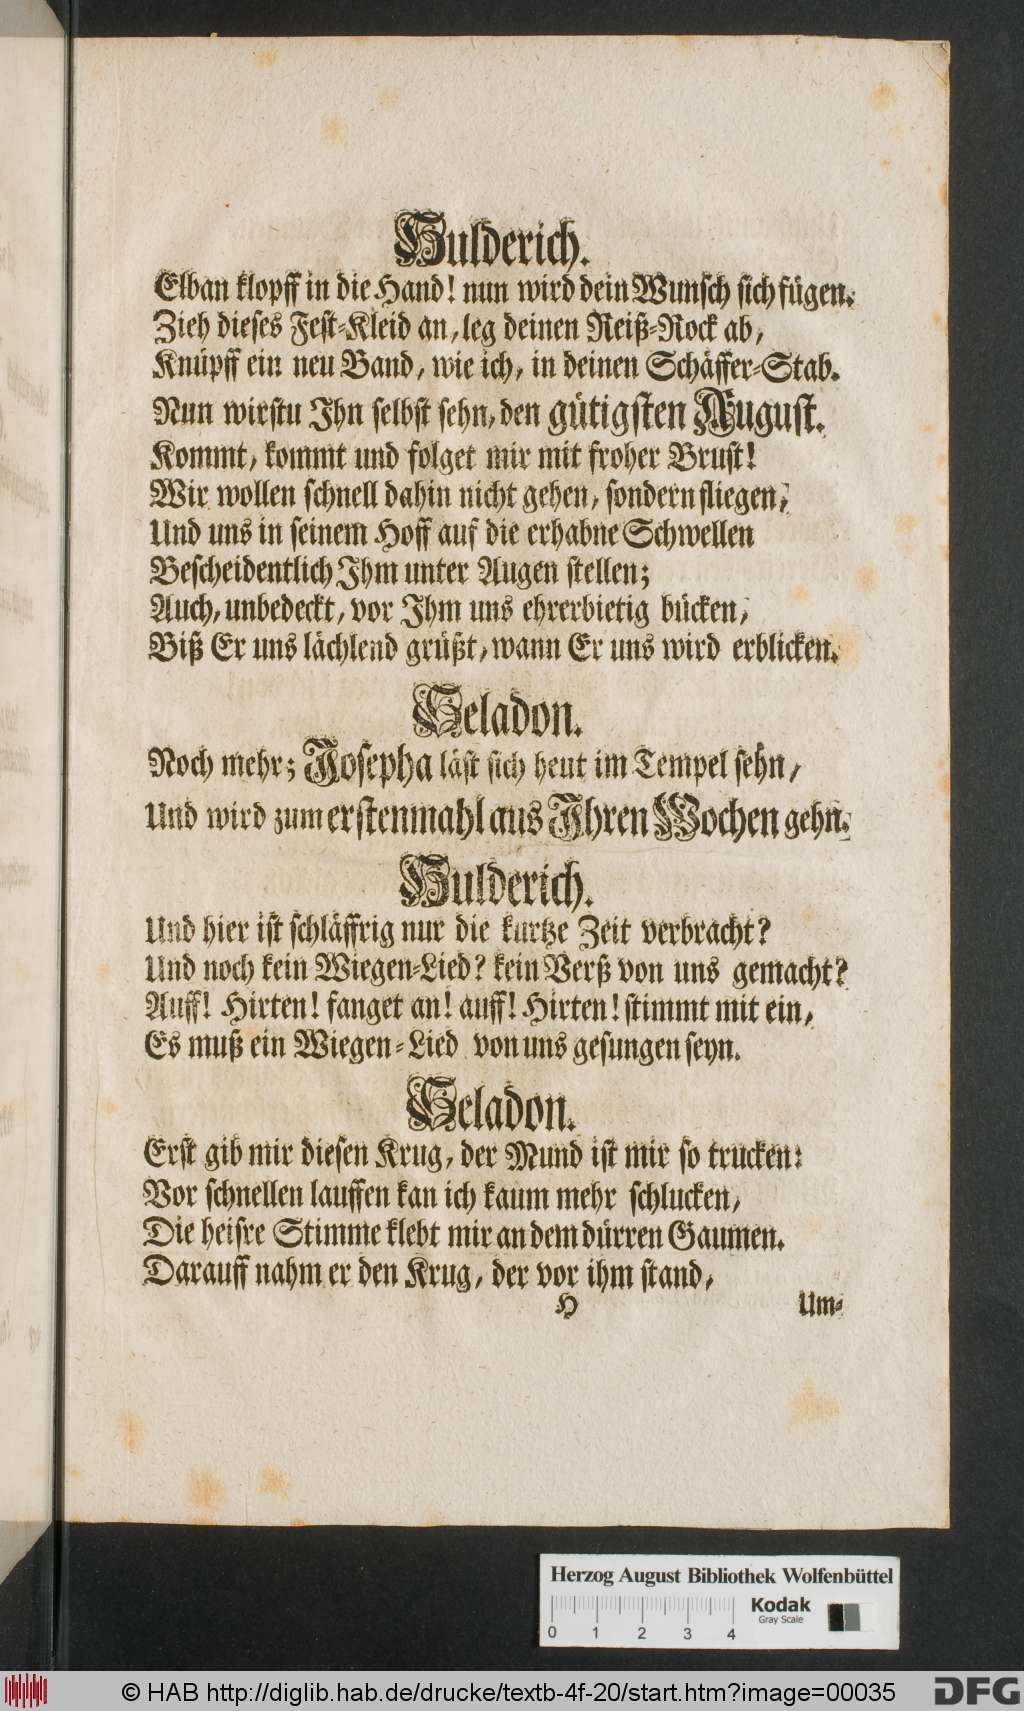 Hulderich.
Elban klopff in die Hand! nun wird dein Wunsch sich fügen.
Zieh dieses Fest-Kleid an, leg deinen Reiß-Rock ab,
Knüpff ein neu Band, wie ich, in deinen Schäffer-Stab.
Nun wirstu Ihn selbst sehn, den gütigsten August.
Kommt, kommt und folget mir mit froher Brust!
Wir wollen schnell dahin nicht gehen, sondern fliegen,
Und uns in seinem Hoff auf die erhabne Schwellen
Bescheidentlich Ihm unter Augen stellen;
Auch, unbedeckt, vor Ihm uns ehrerbietig bücken,
Biß Er uns lächlend grüßt, wann Er uns wird erblicken.
Seladon.
Noch mehr; Josepha läst sich heut im Tempel sehn,
Und wird zum erstenmahl aus Ihren Wochen gehn.
Hulderich.
Und hier ist schläffrig nur die kurtze Zeit verbracht?
Und noch kein Wiegen-Lied? kein Verß von uns gemacht?
Auff! Hirten! fanget an! auff! Hirten! stimmt mit ein,
Es muß ein Wiegen-Lied von uns gesungen seyn.
Seladon.
Erst gib mir diesen Krug, der Mund ist mir so trucken:
Vor schnellen lauffen kan ich kaum mehr schlucken,
Die heisre Stimme klebt mir an dem dürren Gaumen.
Darauff nahm er den Krug, der vor ihm stand,
H Um-
Herzog August Bibliothek Wolfenbüttel
0 1 2 3 4
Kodak
Gray Scale
© HAB http://diglib.hab.de/drucke/textb-4f-20/start.htm?image=00035
DFG